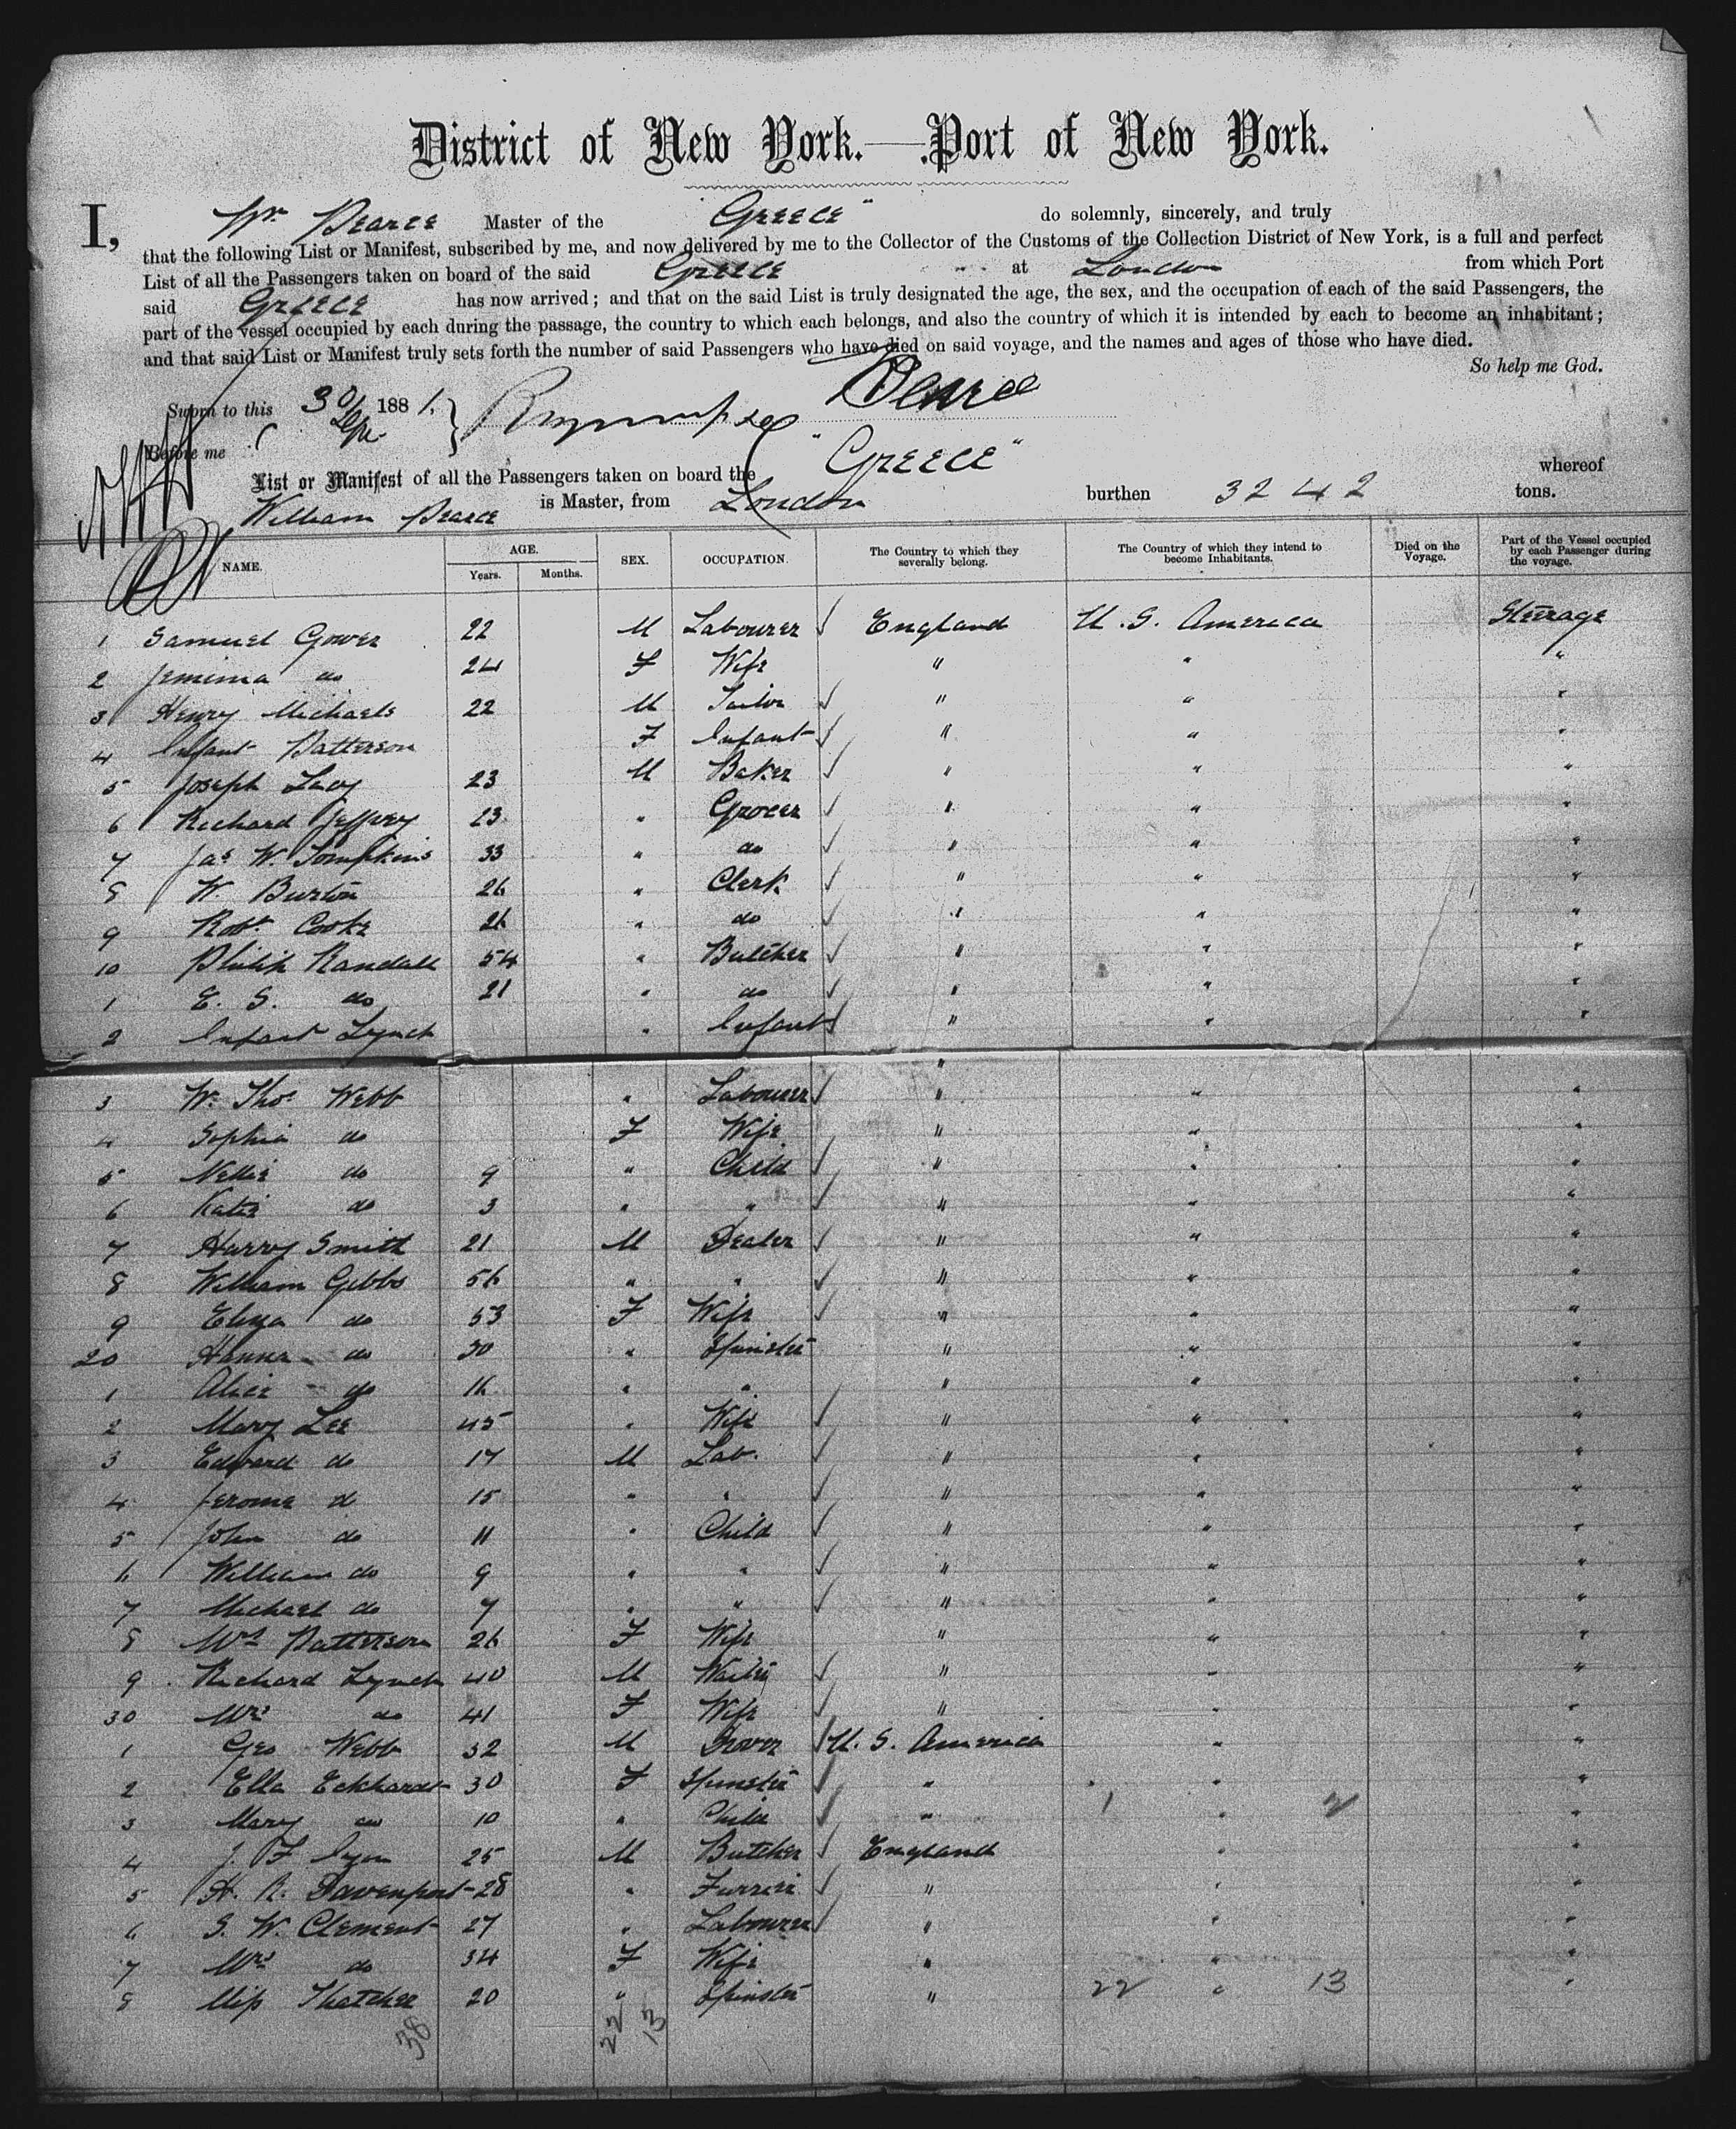 District of New York.—Port of New York.
I, Wm Pearce Master of the "Greece" do solemnly, sincerely, and truly
that the following List or Manifest, subscribed by me, and now delivered by me to the Collector of the Customs of the Collection District of New York, is a full and perfect
List of all the Passengers taken on board of the said Greece at London from which Port
said Greece has now arrived; and that on the said List is truly designated the age, the sex, and the occupation of each of the said Passengers, the
part of the vessel occupied by each during the passage, the country to which each belongs, and also the country of which it is intended by each to become an inhabitant;
and that said List or Manifest truly sets forth the number of said Passengers who have died on said voyage, and the names and ages of those who have died.
So help me God.
Sworn to this 30 1881. Pearce
Before me
List or Manifest of all the Passengers taken on board the "Greece" whereof
William Pearce is Master, from London burthen 3242 tons.
NAME. AGE. Years. Months. SEX. OCCUPATION. The Country to which they severally belong. The Country of which they intend to become Inhabitants. Died on the Voyage. Part of the Vessel occupied by each Passenger during the voyage.
1 Samuel Gower 22 M Labourer ✓ England U.S. America Steerage
2 Jemima do 24 F Wife " " "
3 Henry Michaels 22 M Tailor ✓ " " "
4 Infant Patterson F Infant ✓ " " "
5 Joseph Lacy 23 M Baker ✓ " " "
6 Richard Jeffrey 23 " Grocer ✓ " " "
7 Jas W. Tompkins 33 " do ✓ " " "
8 W. Burton 26 " Clerk ✓ " " "
9 Robt Cooke 26 " do ✓ " " "
10 Philip Randall 54 " Butcher ✓ " " "
1 E. S. do 21 " do ✓ " " "
2 Infant Lynch " Infant ✓ " " "
3 Wm Thos Webb " Labourer ✓ " " "
4 Sophia do F Wife " " "
5 Nellie do 9 " Child ✓ " " "
6 Katie do 3 " " ✓ " " "
7 Harry Smith 21 M Dealer ✓ " " "
8 William Gibbs 56 " " ✓ " " "
9 Eliza do 53 F Wife ✓ " " "
20 Hanna do 30 " Spinster " " "
1 Alice do 16 " " ✓ " " "
2 Mary Lee 45 " Wife ✓ " " "
3 Edward do 17 M Lab. ✓ " " "
4 Jerome d 15 " " ✓ " " "
5 John do 11 " Child ✓ " " "
6 William do 9 " " ✓ " " "
7 Michael do 7 " " ✓ " " "
8 Mrs Patterson 26 F Wife " " "
9 Richard Lynch 40 M ✓ " " "
30 Mrs do 41 F Wife ✓ " " "
1 Geo Webb 32 M Drover ✓ U.S. America " "
2 Ella Eckhardt 30 F Spinster ✓ " " "
3 Mary do 10 " Child ✓ " 1 " 2 "
4 J. F. Lyon 25 M Butcher ✓ England " "
5 H. R. Davenport 28 " Furrier ✓ " " "
6 S. W. Clement 27 " Labourer ✓ " " "
7 Mrs do 34 F Wife " " "
8 Miss Thatcher 20 " Spinster " 22 " 13 "
38 22 13